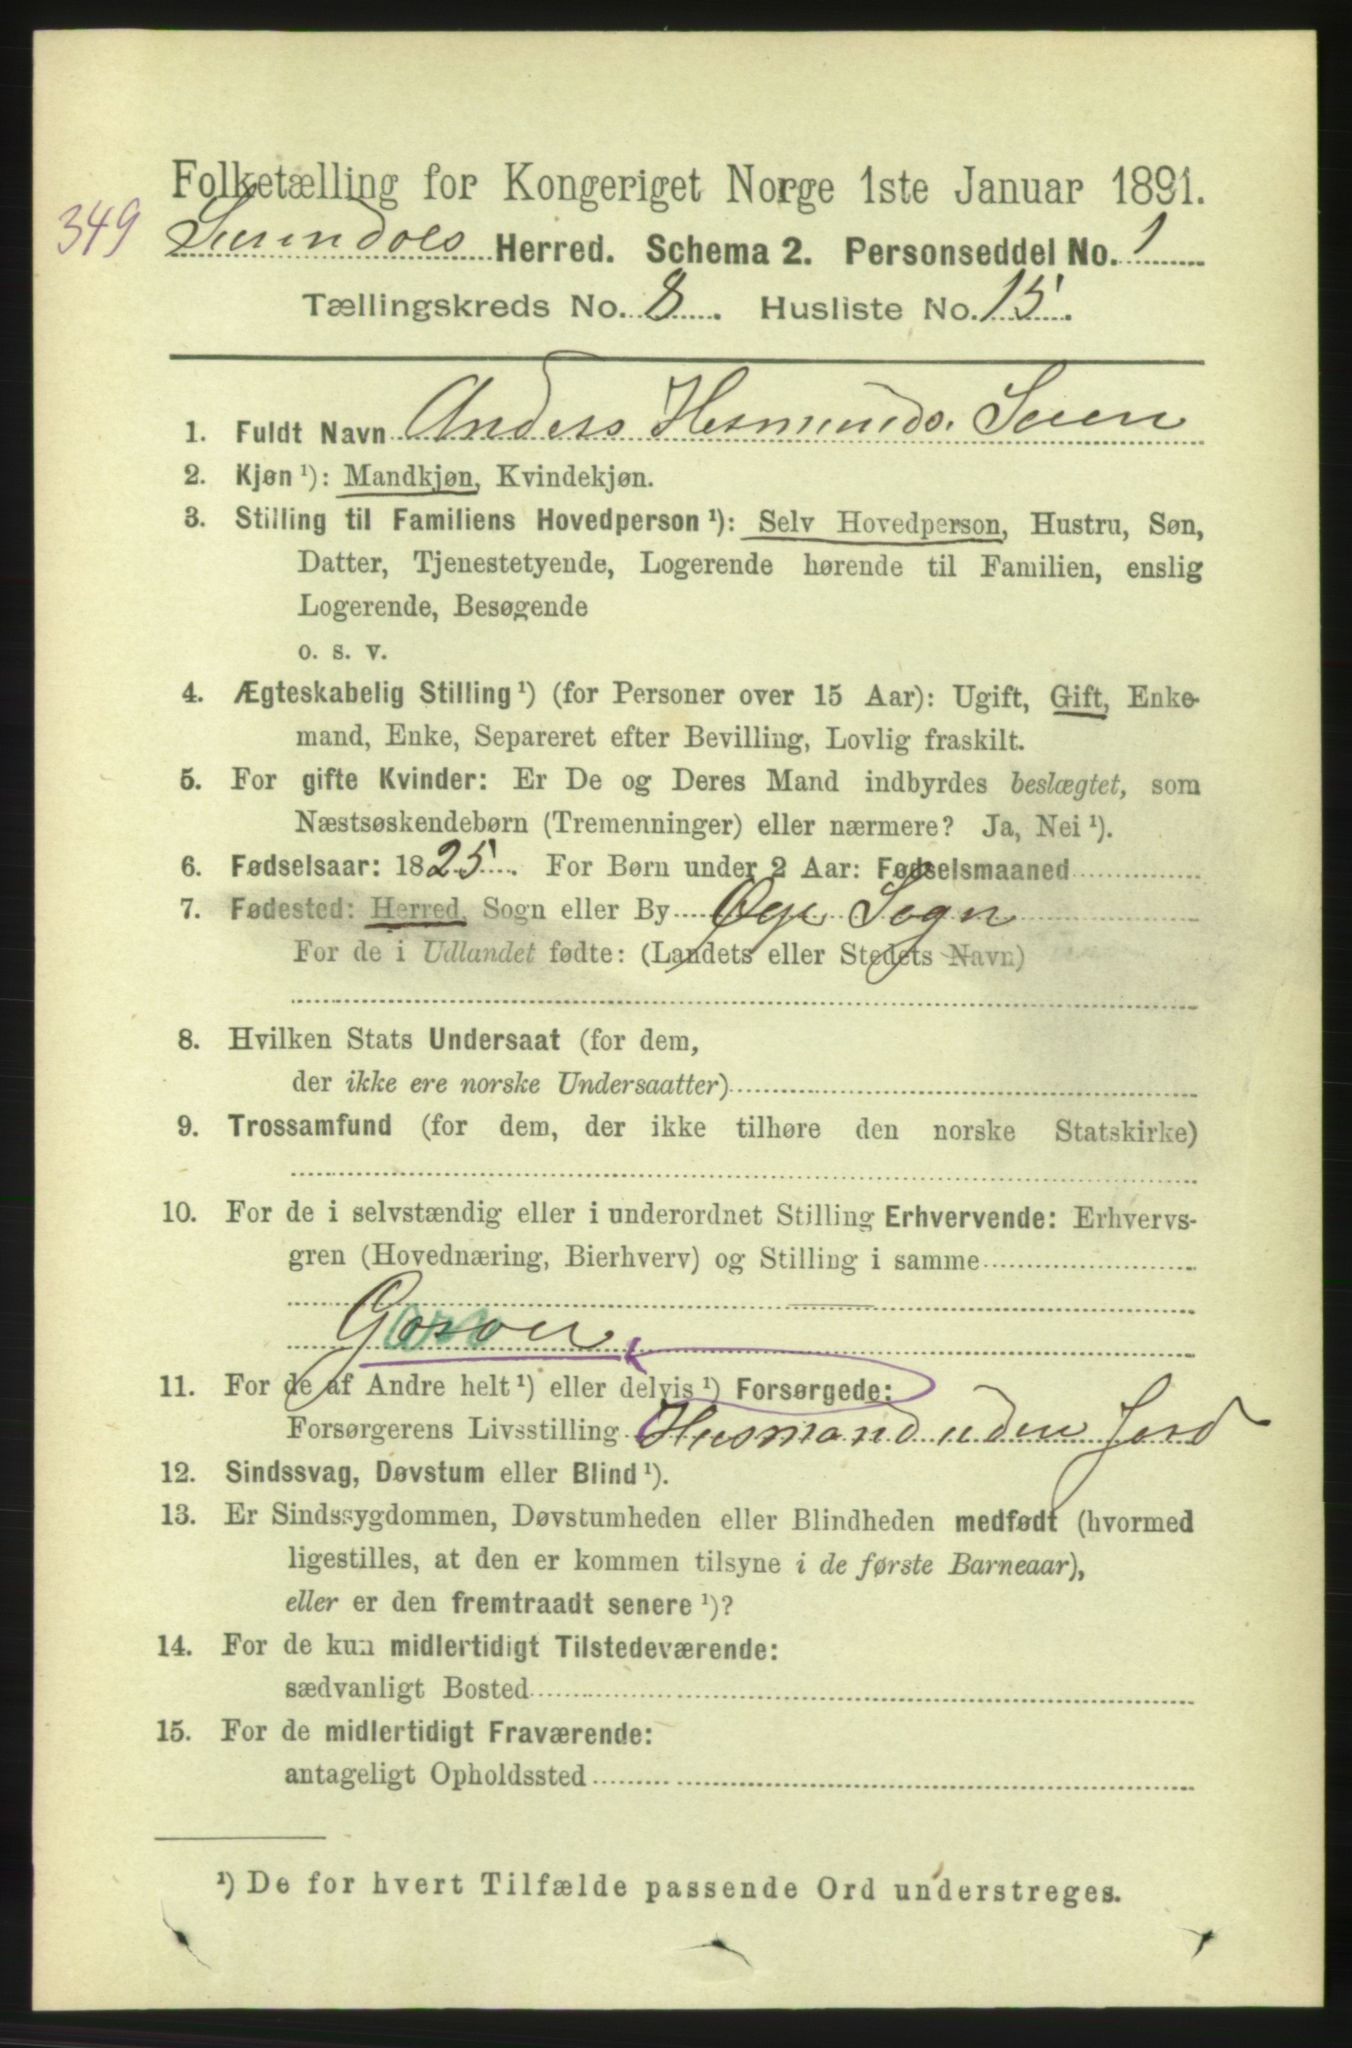 Folketælling for Kongeriget Norge 1ste Januar 1891.
349
Surendals Herred. Schema 2. Personseddel No. 1
Tællingskreds No. 8. Husliste No. 15.
1. Fuldt Navn Anders Hermunds.
2. Kjøn ¹): Mandkjøn, Kvindekjøn.
3. Stilling til Familiens Hovedperson ¹): Selv Hovedperson, Hustru, Søn,
Datter, Tjenestetyende, Logerende hørende til Familien, enslig
Logerende, Besøgende
o. s. v.
4. Ægteskabelig Stilling ¹) (for Personer over 15 Aar): Ugift, Gift, Enke-
mand, Enke, Separeret efter Bevilling, Lovlig fraskilt.
5. For gifte Kvinder: Er De og Deres Mand indbyrdes beslægtet, som
Næstsøskendebørn (Tremenninger) eller nærmere? Ja, Nei ¹).
6. Fødselsaar: 1825. For Børn under 2 Aar: Fødselsmaaned
7. Fødested: Herred, Sogn eller By Øye Sogn
For de i Udlandet fødte: (Landets eller Stedets Navn)
8. Hvilken Stats Undersaat (for dem,
der ikke ere norske Undersaatter)
9. Trossamfund (for dem, der ikke tilhøre den norske Statskirke)
10. For de i selvstændig eller i underordnet Stilling Erhvervende: Erhvervs-
gren (Hovednæring, Bierhverv) og Stilling i samme
11. For de af Andre helt ¹) eller delvis ¹) Forsørgede:
Forsørgerens Livsstilling Husmand uden Jord
12. Sindssvag, Døvstum eller Blind ¹).
13. Er Sindssygdommen, Døvstumheden eller Blindheden medfødt (hvormed
ligestilles, at den er kommen tilsyne i de første Barneaar),
eller er den fremtraadt senere ¹)?
14. For de kun midlertidigt Tilstedeværende:
sædvanligt Bosted
15. For de midlertidigt Fraværende:
antageligt Opholdssted
¹) De for hvert Tilfælde passende Ord understreges.